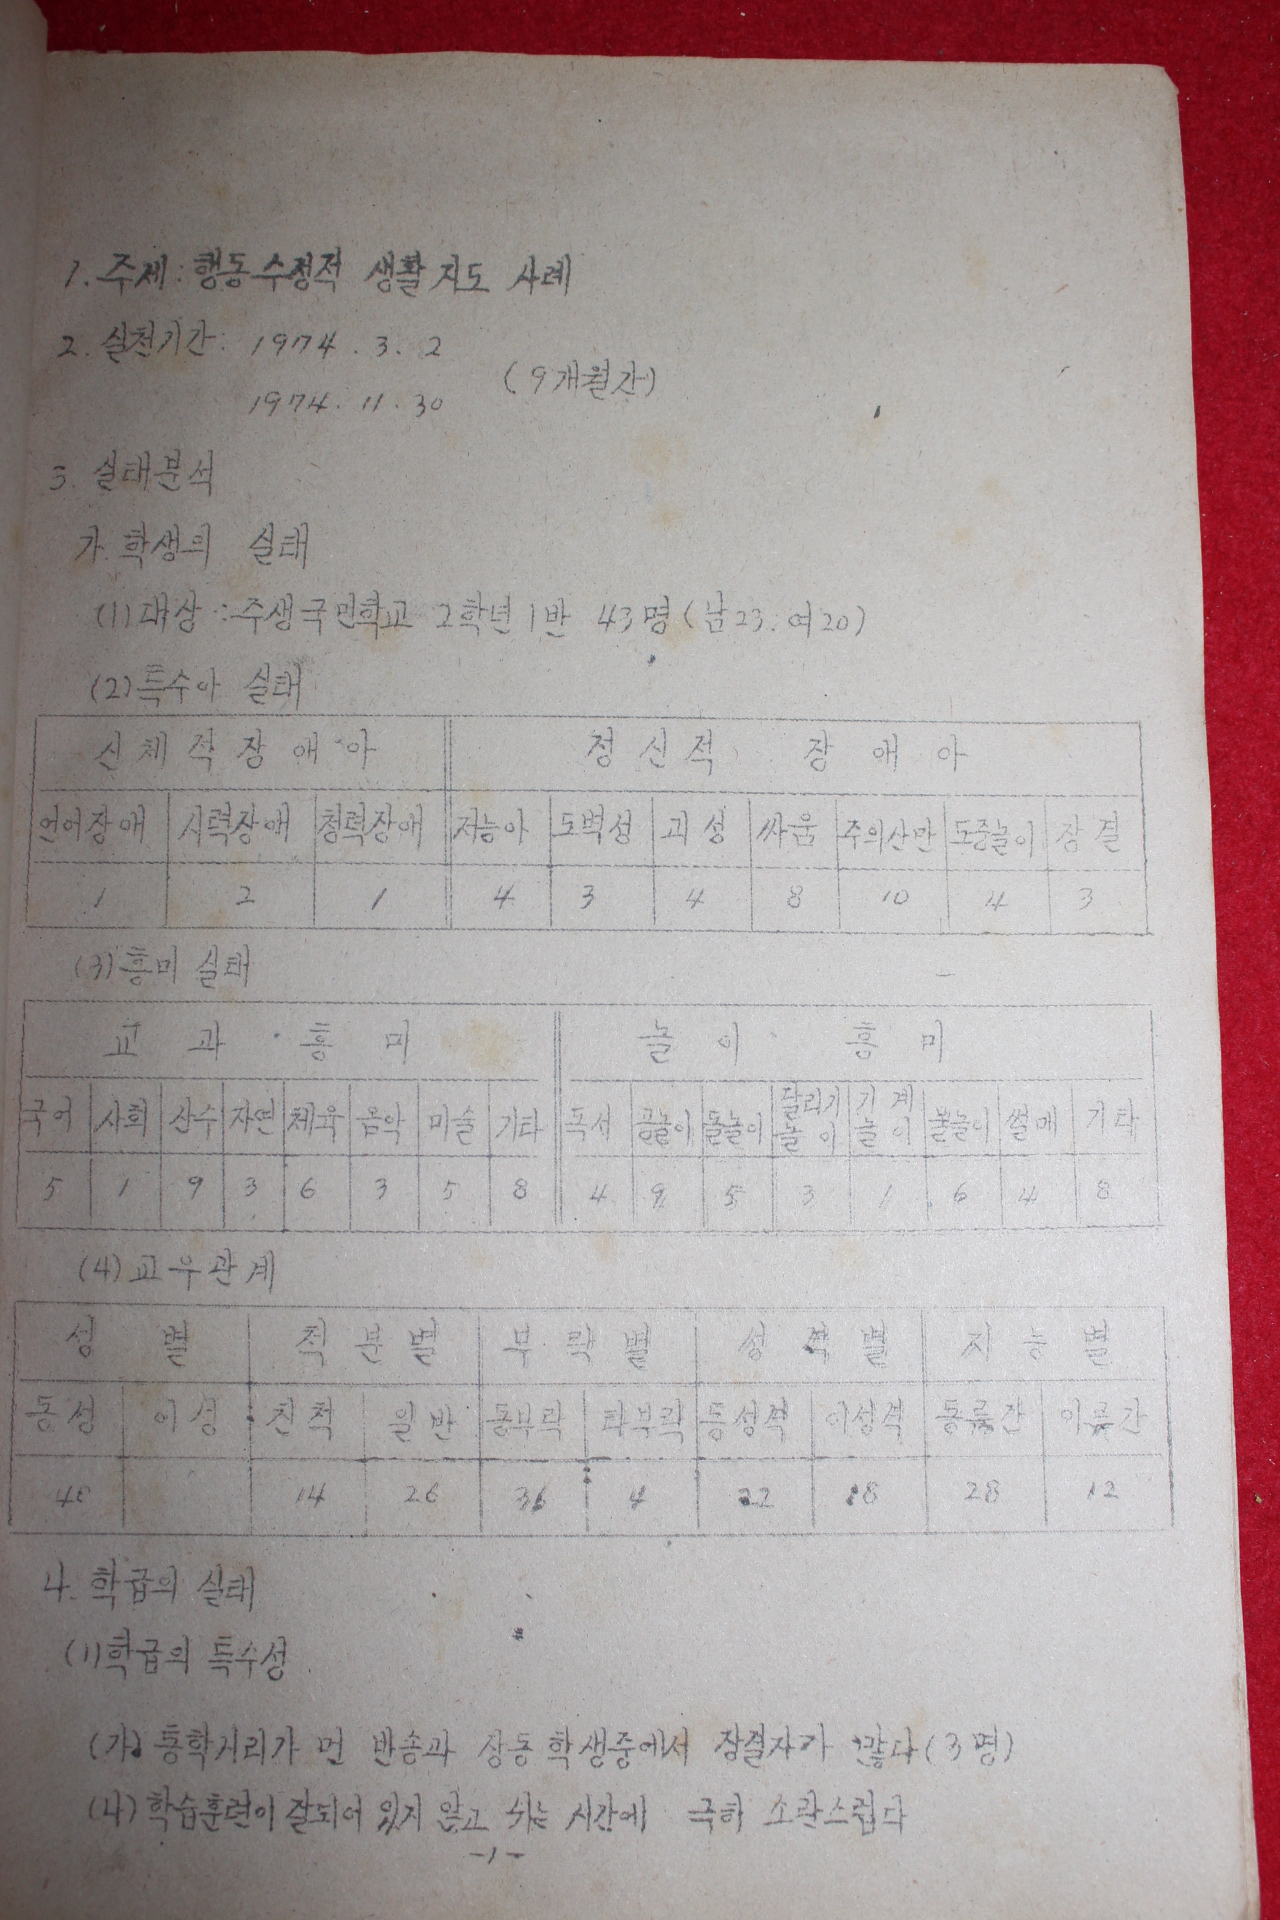 1. 주제 : 행동수정적 생활지도 사례
2. 실천기간 : 1974. 3. 2
(9개월간)
1974. 11. 30
3. 실태분석
가. 학생의 실태
(1) 대상 : 주생국민학교 2학년 1반 43명 (남23. 여20)
(2) 특수아 실태
신체적장애아 정신적 장애아
언어장애 시력장애 청력장애 저능아 도벽성 괴성 싸움 주의산만 도중놀이 장결
1 2 1 4 3 4 8 10 4 3
(3) 흥미 실태
교과 흥미 놀이 흥미
국어 사회 산수 자연 체육 음악 미술 기타 독서 공놀이 돌놀이 달리기놀이 기계놀이 불놀이 썰매 기타
5 1 9 3 6 3 5 8 4 9 5 3 1 6 4 8
(4) 교우관계
성별 척분별 부락별 성격별 지능별
동성 이성 친척 일반 동부락 타부락 동성격 이성격 동류간 이류간
40 14 26 36 4 22 18 28 12
나. 학급의 실태
(1) 학급의 특수성
(가) 통학거리가 먼 반송과 상동 학생중에서 장결자가 많다 (3명)
(나) 학습훈련이 잘되어 있지 않고 쉬는 시간에 극히 소란스럽다
-1-